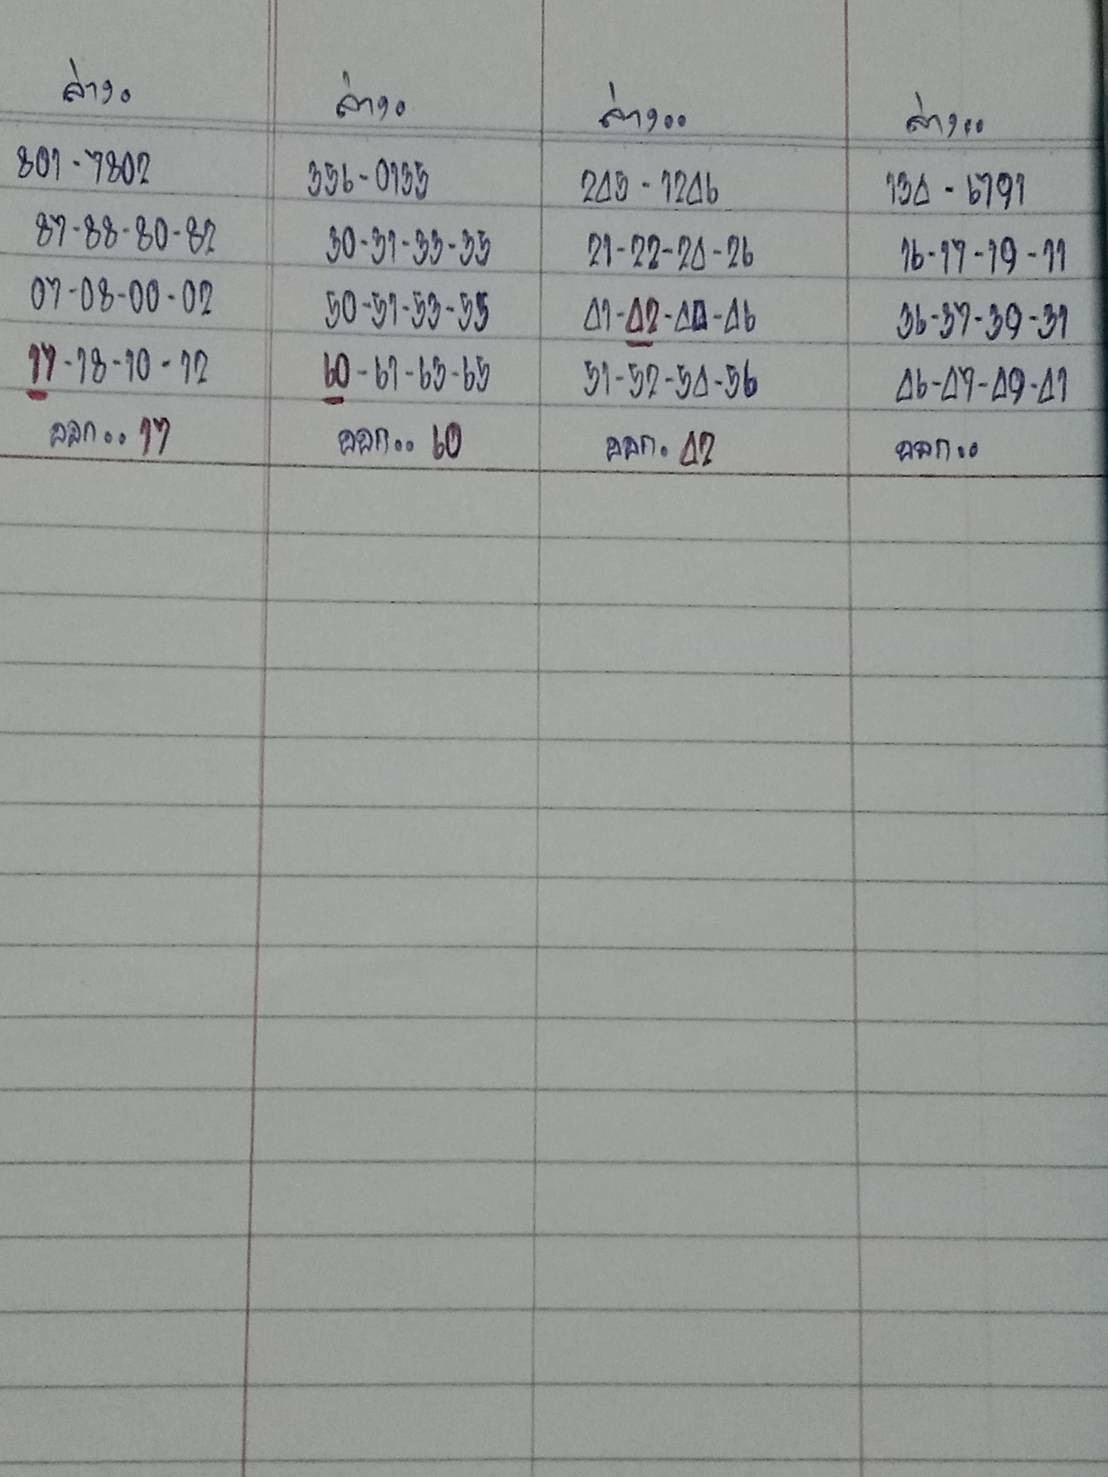 ล่าง.
801-7802
87-88-80-82
07-08-00-02
17-18-10-12
ออก.. 17
ล่าง.
356-0135
30-31-33-35
50-51-53-55
60-61-63-65
ออก.. 60
ล่าง..
245-1246
21-22-24-26
41-42-44-46
51-52-54-56
ออก. 42
ล่าง..
134-6791
16-17-19-11
36-37-39-31
46-47-49-41
ออก..